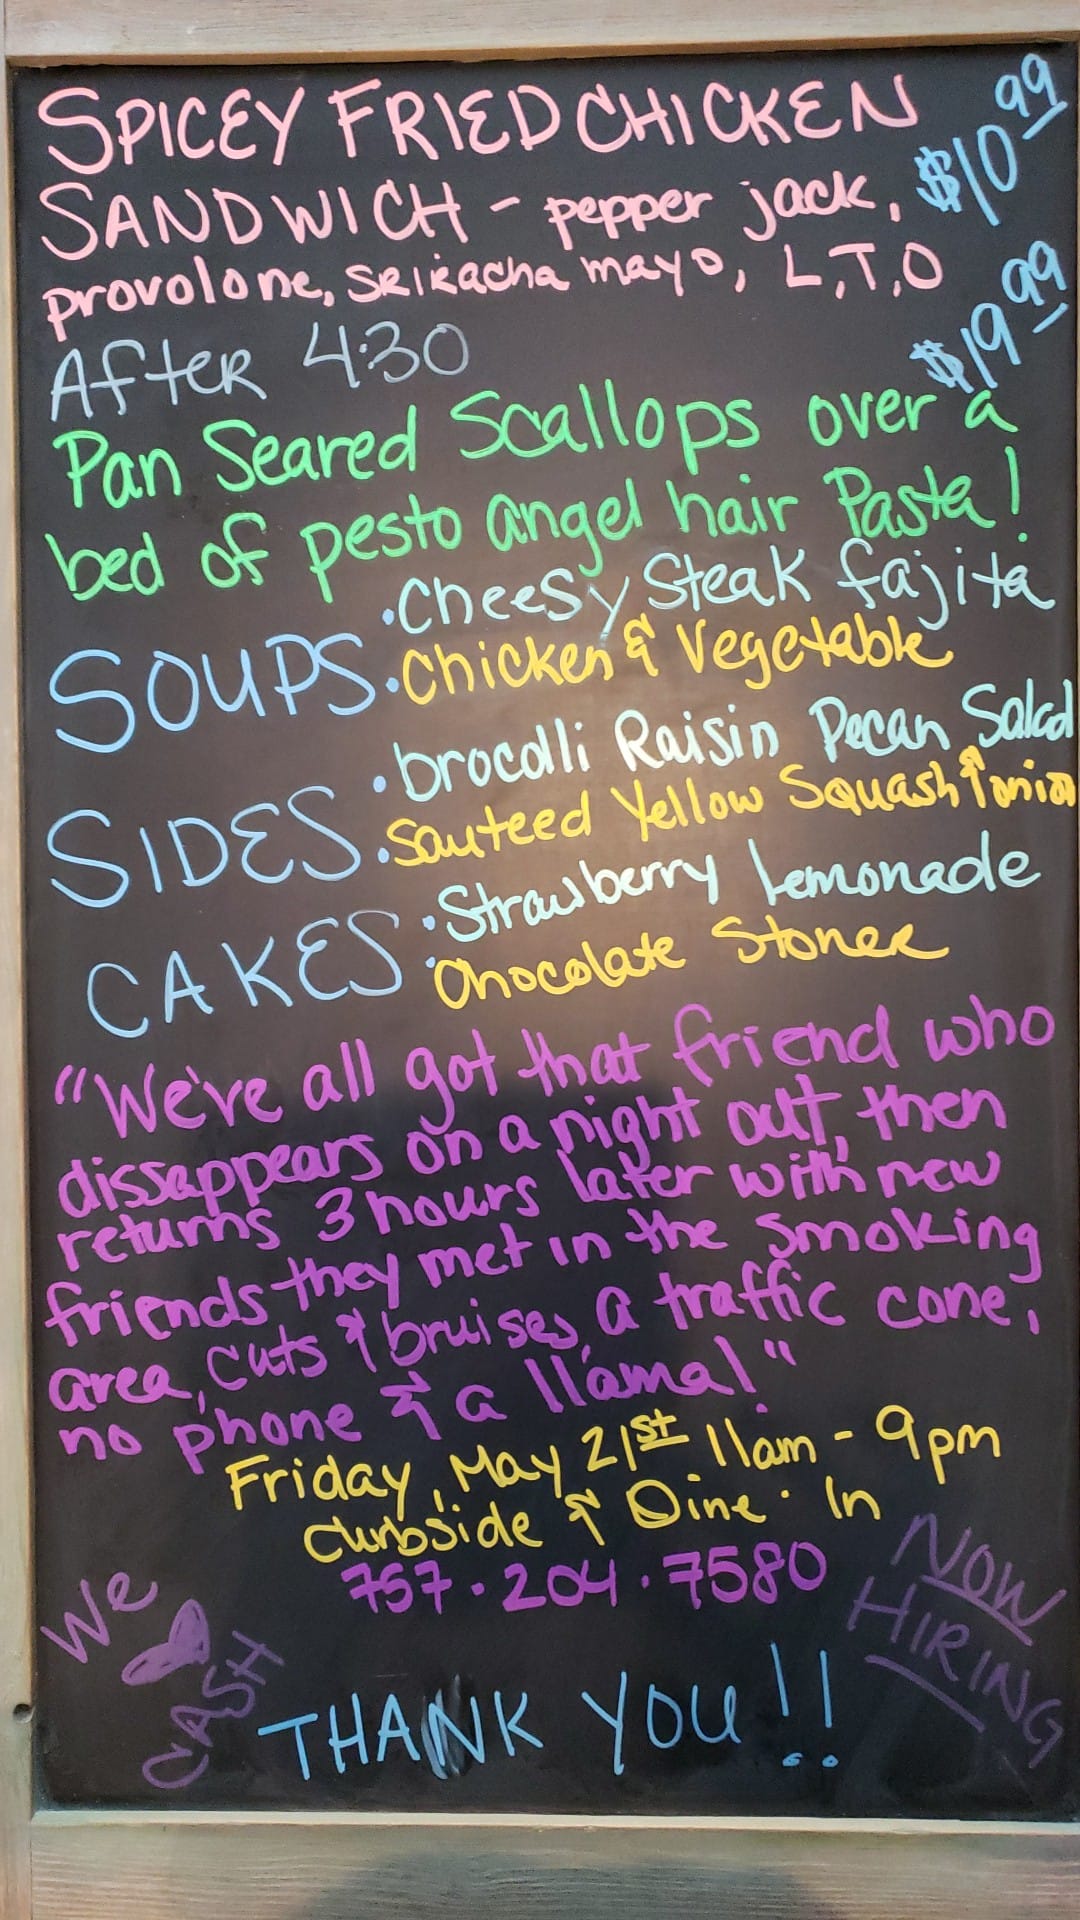 SPICEY FRIED CHICKEN
SANDWICH - pepper jack, $10.99
provolone, sriracha mayo, L,T,O
After 4:30 $19.99
Pan Seared Scallops over a
bed of pesto angel hair Pasta!
SOUPS • Cheesy Steak fajita
• Chicken & Vegetable
SIDES • brocolli Raisin Pecan Salad
• Sauteed Yellow Squash & onion
CAKES • Strawberry Lemonade
• Chocolate Stoner
"We've all got that friend who
dissappears on a night out, then
returns 3 hours later with new
friends they met in the smoking
area, cuts & bruises, a traffic cone,
no phone & a llama!"
Friday, May 21st 11am - 9pm
Curbside & Dine-In
757·204·7580
We ♥ CASH
NOW HIRING
THANK YOU!!